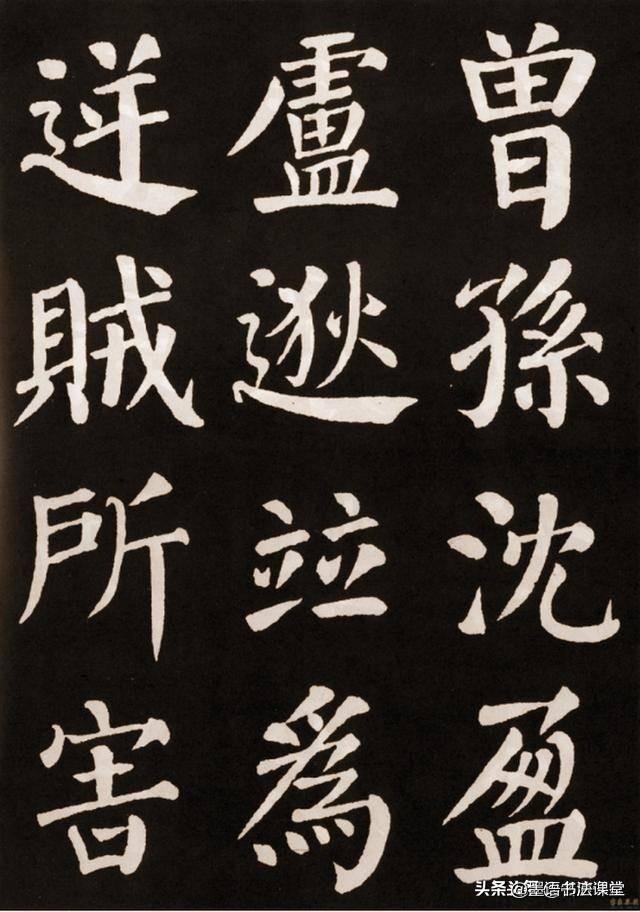 曾孫沈盈
盧逖竝為
逆賊所害
头条 @墨语书法课堂